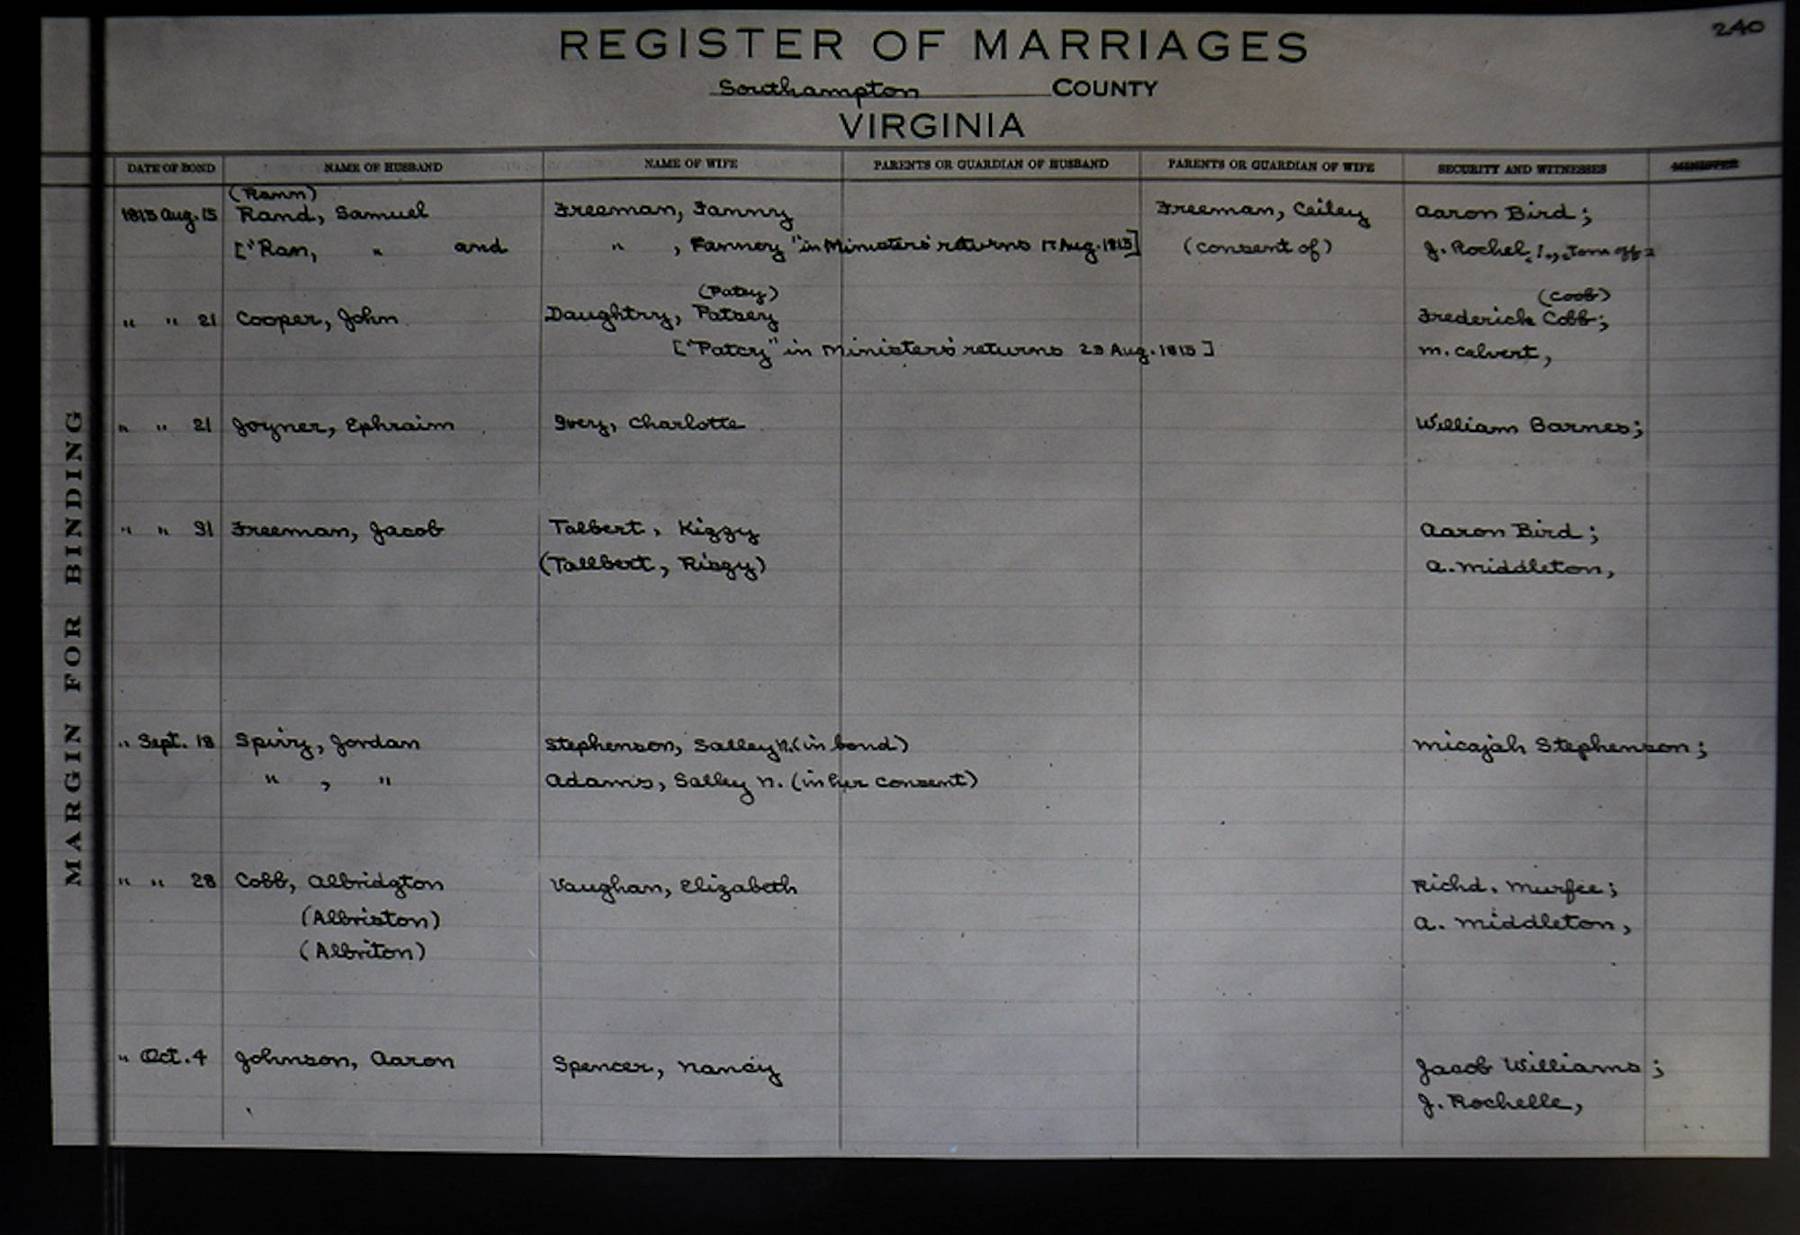 240
REGISTER OF MARRIAGES
Southampton COUNTY
VIRGINIA
DATE OF BOND NAME OF HUSBAND NAME OF WIFE PARENTS OR GUARDIAN OF HUSBAND PARENTS OR GUARDIAN OF WIFE SECURITY AND WITNESSES MINISTER
(Ramn)
1815 Aug. 15 Rand, Samuel Freeman, Fanny Freeman, Ceiley Aaron Bird;
["Ran, " and " , Fannoy" in Ministers' returns 17 Aug. 1815] (consent of) J. Rochel,
(Patsy) (Coob)
" " 21 Cooper, John Daughtry, Patsey Frederick Cobb;
["Patcy" in Ministers' returns 23 Aug. 1815] M. Calvert,
" " 21 Joyner, Ephraim Ivery, Charlotte William Barnes;
" " 31 Freeman, Jacob Talbert, Kizzy Aaron Bird;
(Tallbert, Riszy) A. Middleton,
" Sept. 18 Spivy, Jordan Stephenson, Salley N. (in bond) Micajah Stephenson;
" , " Adams, Salley N. (in her consent)
" " 28 Cobb, Albridgton Vaughan, Elizabeth Richd. Murfee;
(Albriston) A. Middleton,
(Albriton)
" Oct. 4 Johnson, Aaron Spencer, Nancy Jacob Williams;
J. Rochelle,
MARGIN FOR BINDING